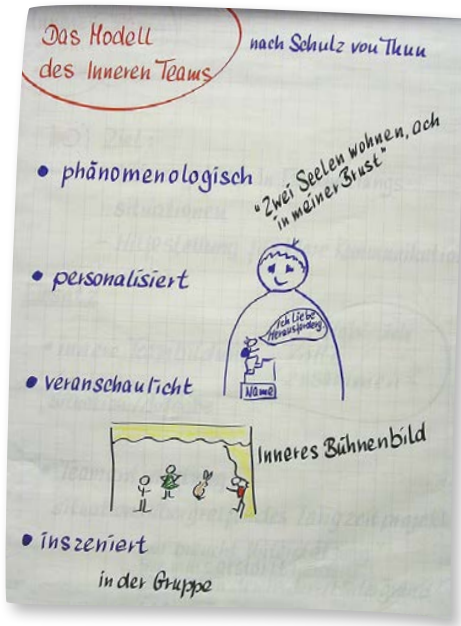 Das Modell
des Inneren Teams
nach Schulz von Thun
• phänomenologisch
"Zwei Seelen wohnen, ach
in meiner Brust"
• personalisiert
Ich liebe
Herausforderg.
Name
• veranschaulicht
Inneres Bühnenbild
• inszeniert
in der Gruppe